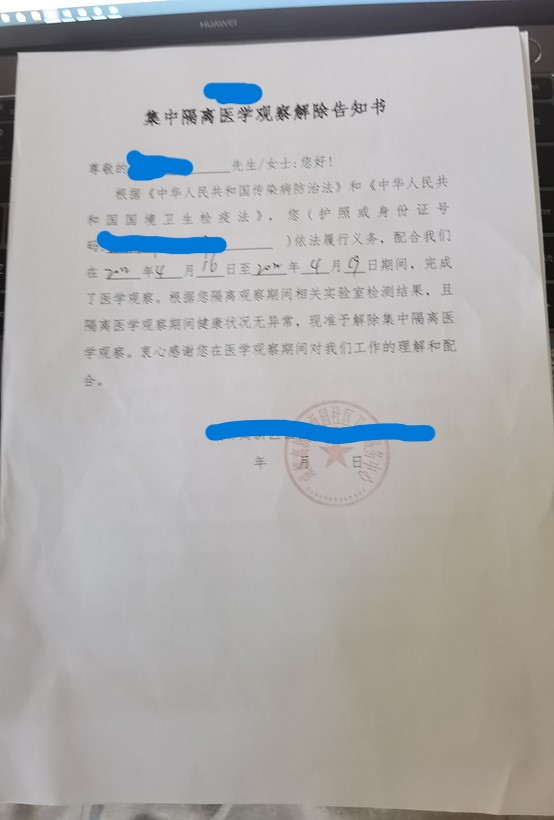 HUAWEI
集中隔离医学观察解除告知书
尊敬的 先生/女士:您好!
根据《中华人民共和国传染病防治法》和《中华人民共
和国国境卫生检疫法》,您(护照或身份证号
码: )依法履行义务,配合我们
在2022年4月16日至2022年4月19日期间,完成
了医学观察。根据您隔离观察期间相关实验室检测结果,且
隔离医学观察期间健康状况无异常,现准予解除集中隔离医
学观察。衷心感谢您在医学观察期间对我们工作的理解和配
合。
年 月 日